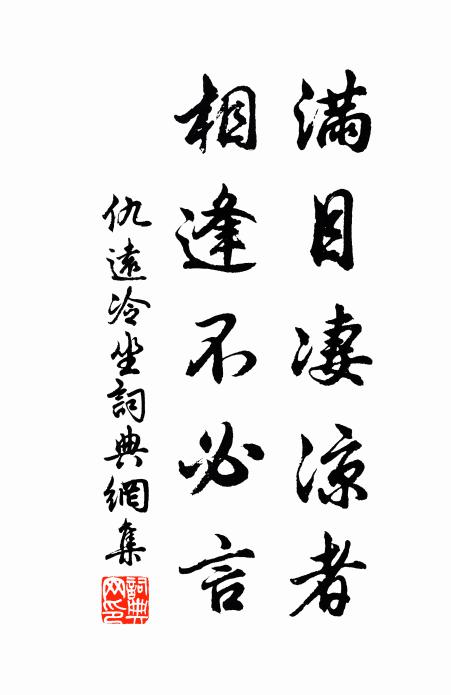 滿目凄凉者
相逢不必言
仇遠冷坐詞典網集
詞典網印